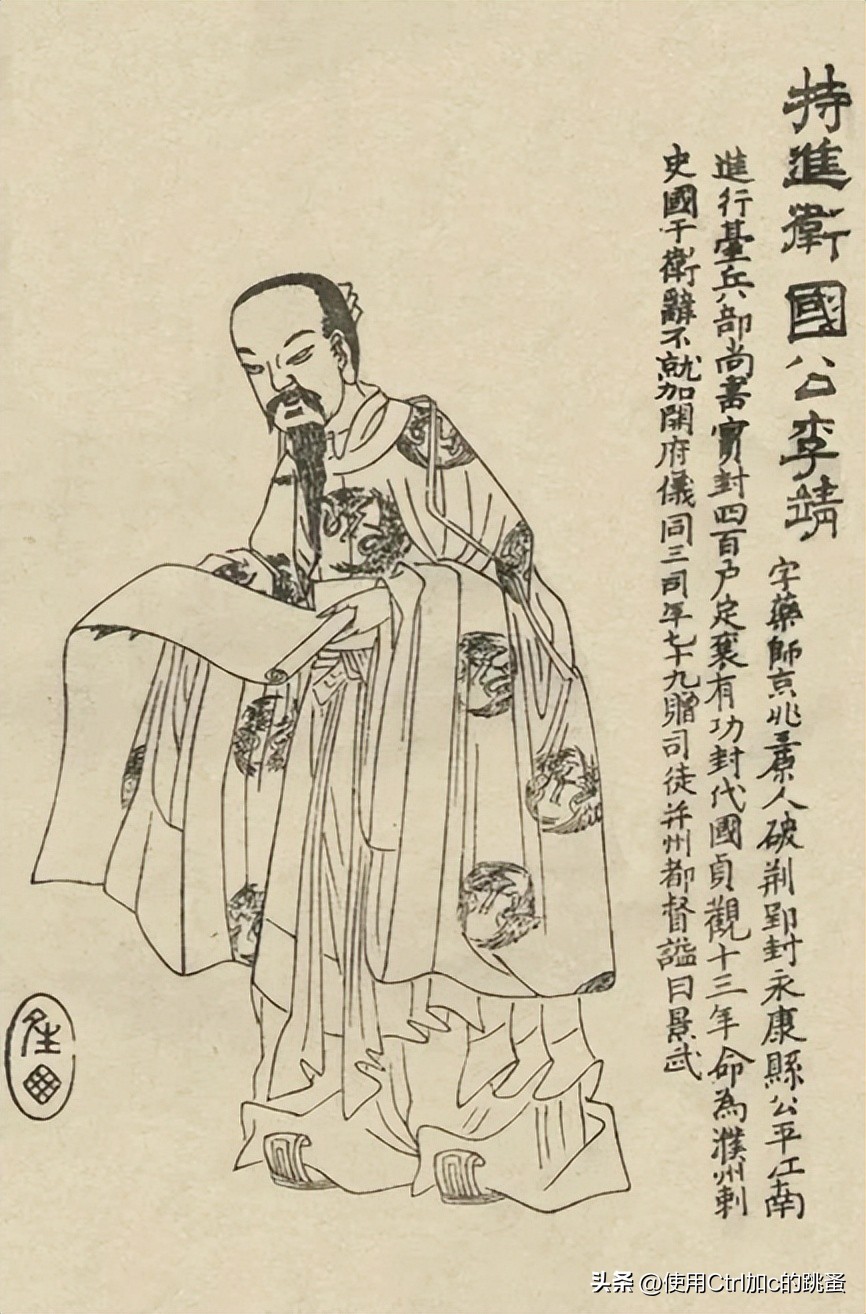 特進衛國公李靖
字藥師京兆三原人破荆郢封永康縣公平江南
進行臺兵部尚書實封四百戶定襄有功封代國貞觀十三年命為濮州刺
史國于衛辭不就加開府儀同三司年七十九贈司徒并州都督謚曰景武
头条 @使用Ctrl加c的跳蚤